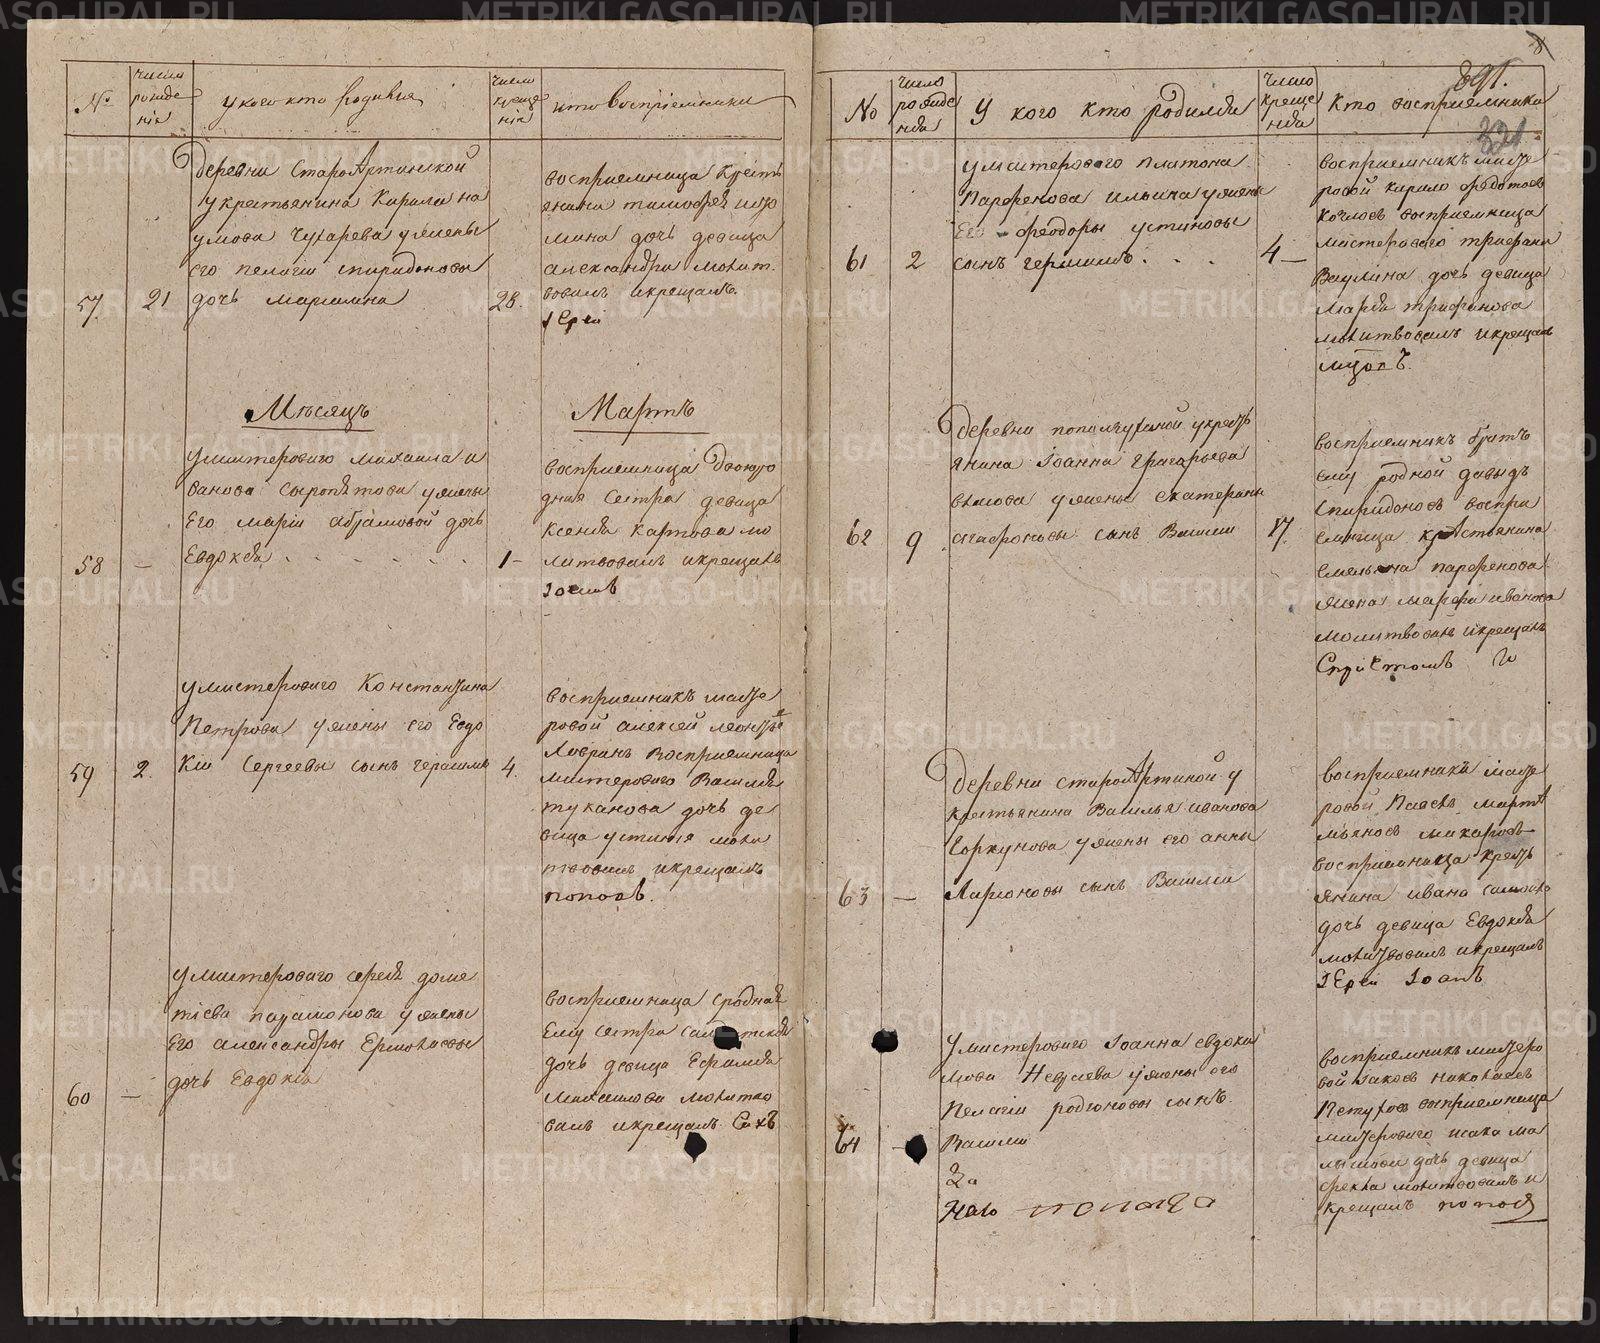 №
число рожде нія
у кого кто родился
число креще нія
кто воспріемники
деревни СтароАртинской
у крестьянина Кирила на
умова Чухарева у жены
его пелагіи спиридоновы
57. 21 дочь маріамна 28.
восприемница кресть
янина тимофея
мина дочь девица
александра молит.
вовалъ икрещалъ.
Іерей
Мѣсяцъ Мартъ
умастероваго михаила и
ванова сыропятова ужены
Его маріи абрамовой дочь
58 – Евдокея . . . . . . 1 –
восприемница двоюро
дная сестра девица
Ксенея Картова мо
литвовалъ икрещалъ
умастероваго Константина
Петрова ужены его Евдо
59 2. Кіи Сергеевы сынъ герасимъ 4.
восприемникъ масте
ровой алексей
восприемница
мастероваго Василья
туканова дочь де
вица устинья моли
твовалъ икрещалъ
поповъ.
умастероваго сергея доме
тіева парамонова ужены
Его александры Ермолаевы
60 – дочь Евдокія
восприемница сродная
Ему сестра
дочь девица Ефимея
михаилова молитво
валъ икрещалъ
891.
321
№
число рожде нія
У кого кто родился
число креще нія
Кто восприемники
умастероваго платона
Парфенова ильина ужены
Его феодоры устиновы
61 2 сынъ герасимъ . . . 4 –
восприемникъ масте
ровой кирило федотовъ
козловъ восприемница
мастероваго трифана
Ваулина дочь девица
марья трифанова
молитвовалъ икрещалъ
деревни попилухиной укресть
янина Іоанна Григорьева
ужены екатерины
62 9 агафоновы сынъ Василий 17.
восприемникъ братъ
ему родной давыдъ
Спиридоновъ воспри
емница крестьянина
емельяна парфенова
жена марфа иванова
молитвовалъ икрещалъ
деревни староАртиной у
крестьянина Василья иванова
Горкунова ужены его анны
63 – Ларионовы сынъ Василий
восприемникъ масте
ровой Павелъ
макаровъ
восприемница кресть
янина ивана
дочь девица Евдокея
молитвовалъ икрещалъ
Іерей Іоаннъ
умастероваго Іоанна евдоки
мова ужены его
Пелагіи родіоновы сынъ
64 – Василий
За
него попова
восприемникъ мастеро
вой Іаковъ николаевъ
Петуховъ восприемница
мастероваго исака ма
лышова дочь девица
фекла молитвовалъ и
крещалъ поповъ